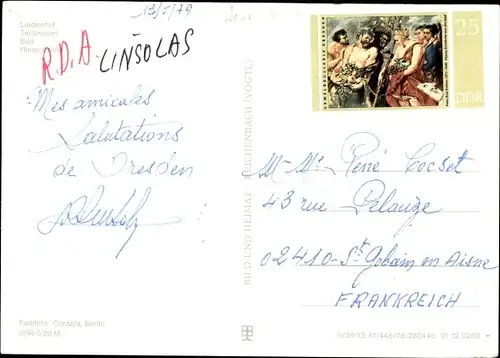 Lindenhof
Bad
13/5/79
R.D.A.
LINSOLAS
25
DDR
Mes amicales
Salutations
de Dresden
BILD UND HEIMAT REICHENBACH (VOGTL)
M. Mme René Cocset
43 rue Pelouze
02410-St Gobain en Aisne
FRANKREICH
Farbfoto: Corazza, Berlin
DDR 0,20 M
A1/446/78/280446 01 12 0260